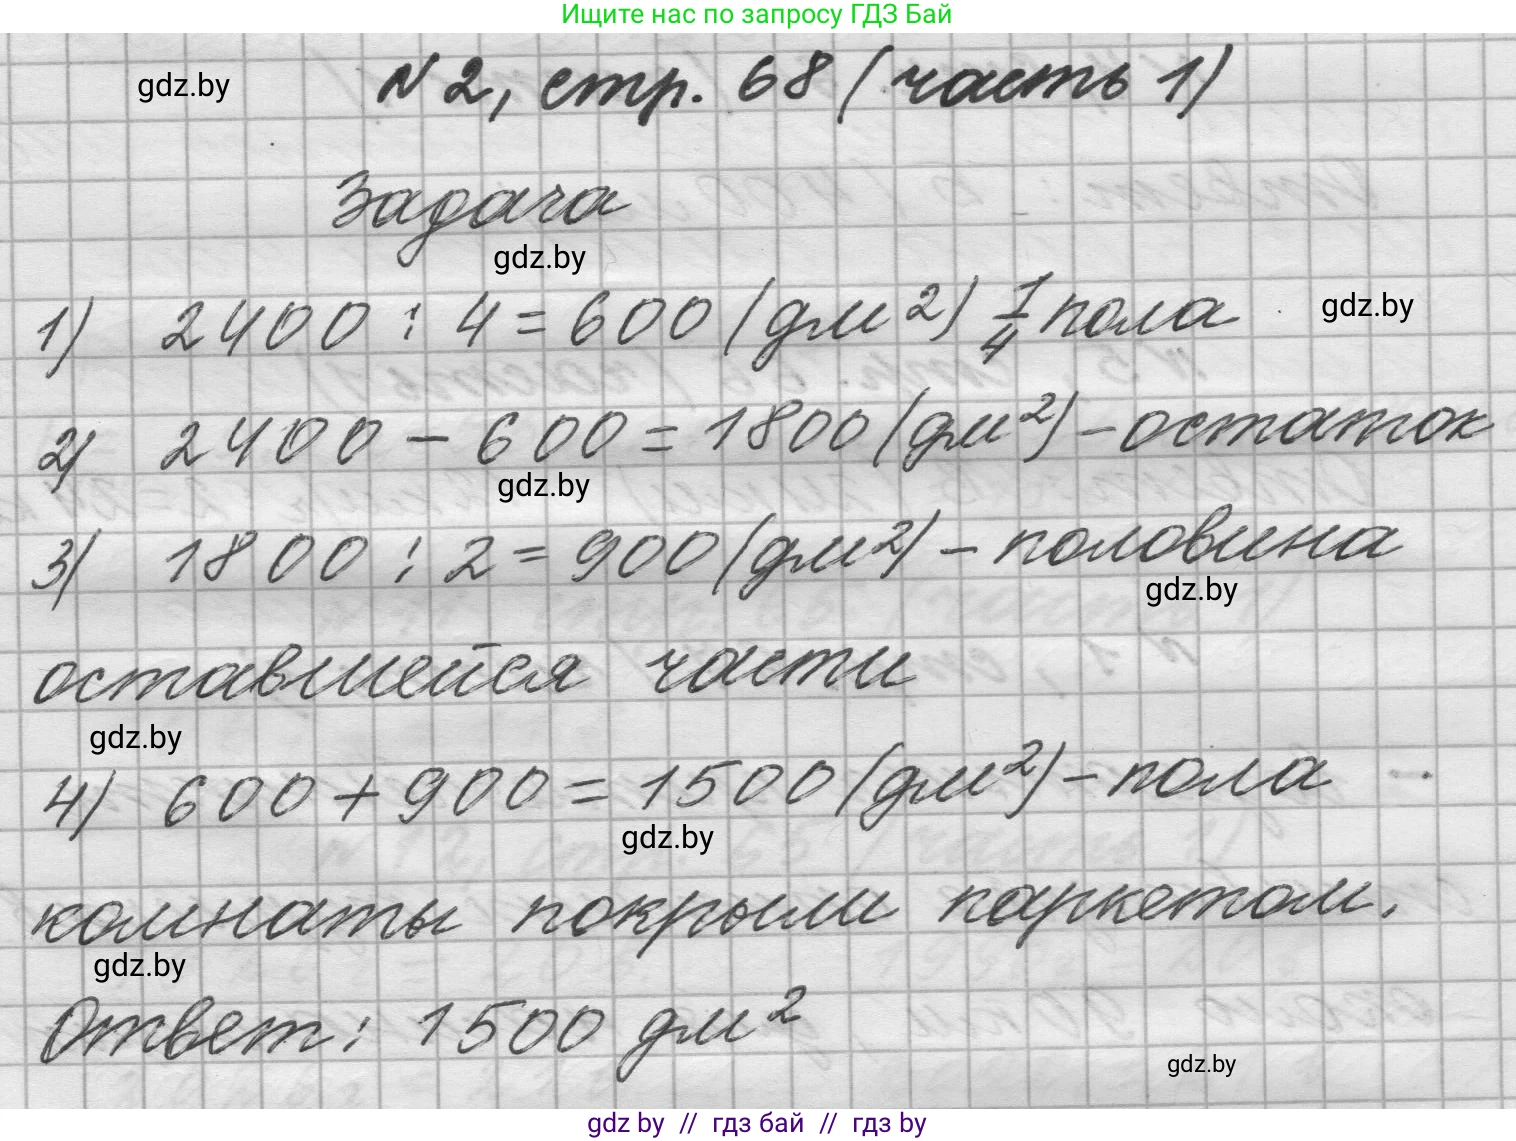 Ищите нас по запросу ГДЗ Бай
gdz.by
N 2, стр. 68 (часть 1)
Задача
gdz.by
1) 2400 : 4 = 600 (дм²) 1/4 пола
gdz.by
2) 2400 - 600 = 1800 (дм²) - остаток
gdz.by
3) 1800 : 2 = 900 (дм²) - половина
gdz.by
оставшейся части
gdz.by
4) 600 + 900 = 1500 (дм²) - пола
gdz.by
комнаты покрыли паркетом.
gdz.by
Ответ: 1500 дм²
gdz.by
gdz by // гдз бай // гдз by